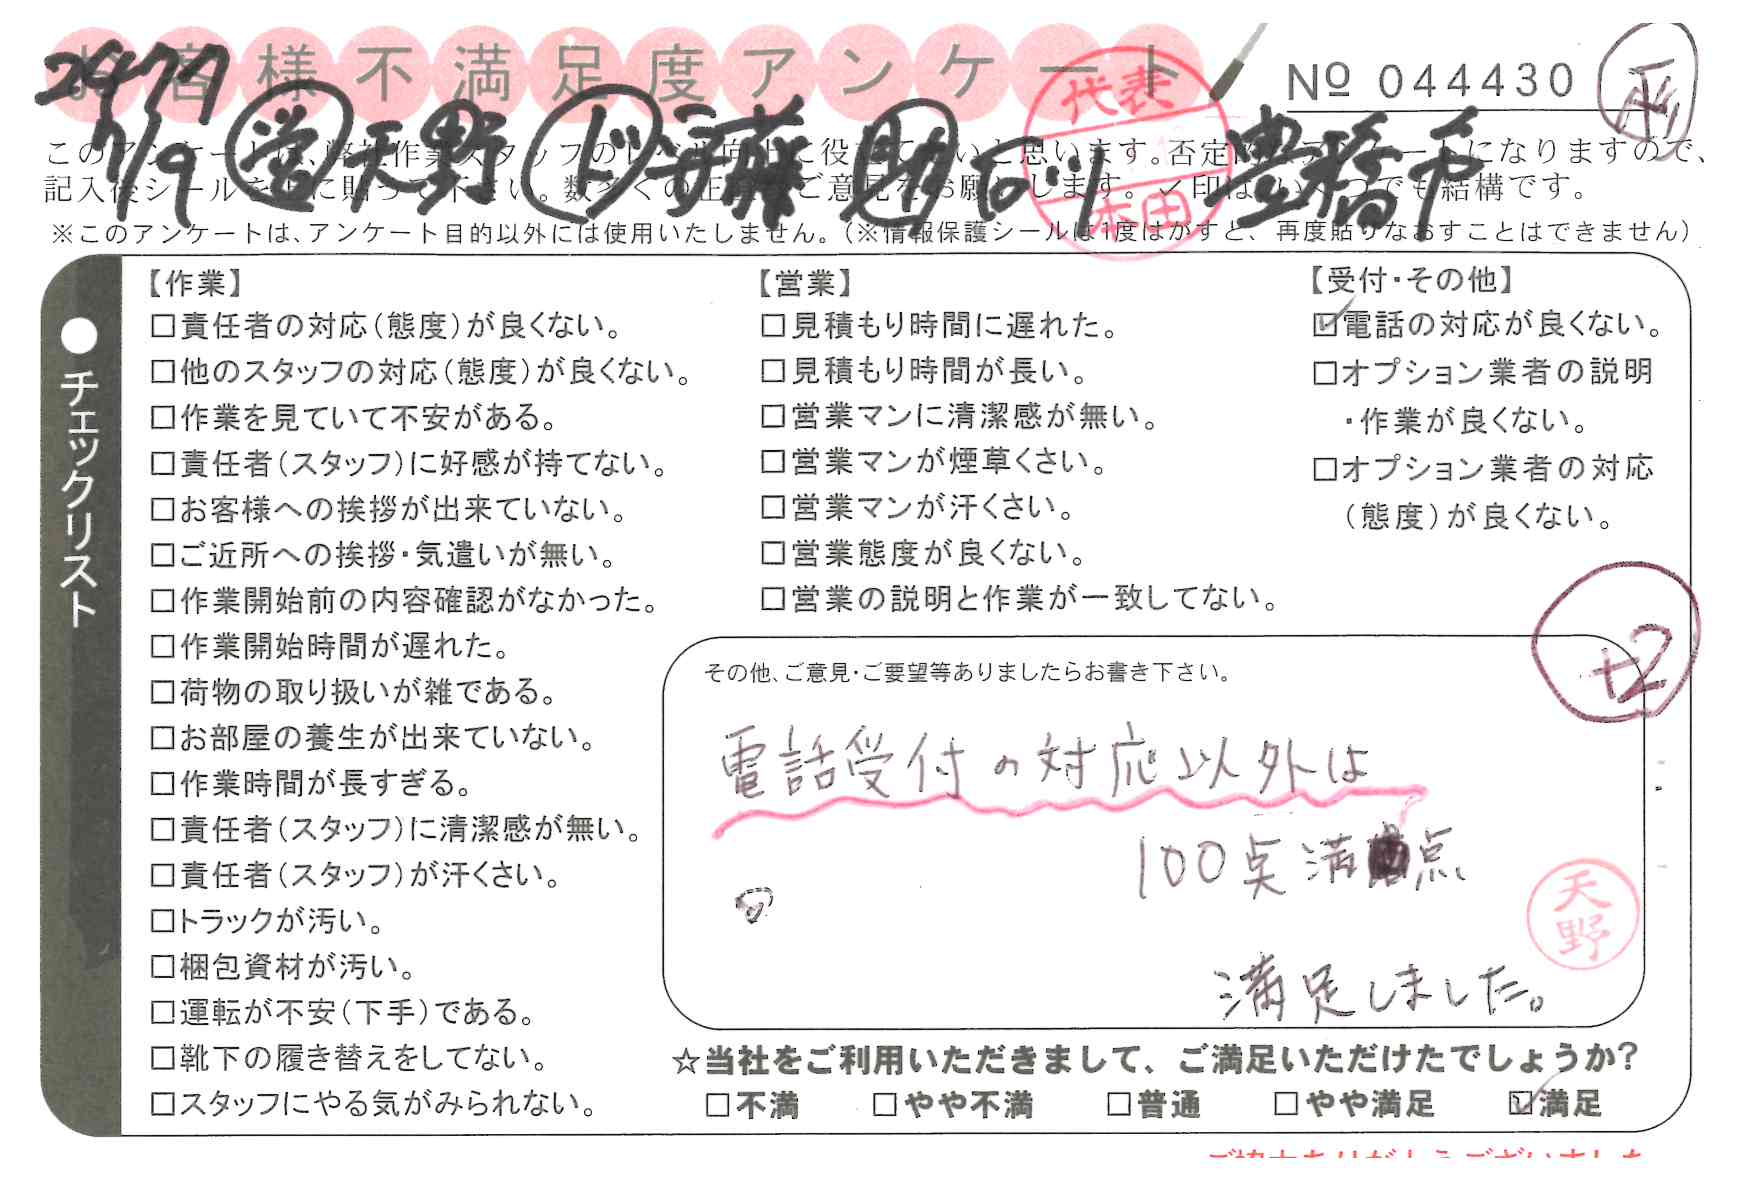 お客様不満足度アンケート
Nº 044430
2477
7/9 営 天野 ド 安藤 助 豊橋市
代表
本田
このアンケートは、弊社作業スタッフのレベル向上に役立てたいと思います。否定的なアンケートになりますので、
記入後シールを上に貼って下さい。数多くの正直なご意見をお願いします。✓印は、いくつでも結構です。
※このアンケートは、アンケート目的以外には使用いたしません。(※情報保護シールは1度はがすと、再度貼りなおすことはできません)
●チェックリスト
【作業】
□責任者の対応(態度)が良くない。
□他のスタッフの対応(態度)が良くない。
□作業を見ていて不安がある。
□責任者(スタッフ)に好感が持てない。
□お客様への挨拶が出来ていない。
□ご近所への挨拶・気遣いが無い。
□作業開始前の内容確認がなかった。
□作業開始時間が遅れた。
□荷物の取り扱いが雑である。
□お部屋の養生が出来ていない。
□作業時間が長すぎる。
□責任者(スタッフ)に清潔感が無い。
□責任者(スタッフ)が汗くさい。
□トラックが汚い。
□梱包資材が汚い。
□運転が不安(下手)である。
□靴下の履き替えをしてない。
□スタッフにやる気がみられない。
【営業】
□見積もり時間に遅れた。
□見積もり時間が長い。
□営業マンに清潔感が無い。
□営業マンが煙草くさい。
□営業マンが汗くさい。
□営業態度が良くない。
□営業の説明と作業が一致してない。
【受付・その他】
☑電話の対応が良くない。
□オプション業者の説明
・作業が良くない。
□オプション業者の対応
(態度)が良くない。
+2
その他、ご意見・ご要望等ありましたらお書き下さい。
電話受付の対応以外は
100点満点
満足しました。
天野
☆当社をご利用いただきまして、ご満足いただけたでしょうか?
□不満 □やや不満 □普通 □やや満足 ☑満足
ご協力ありがとうございました